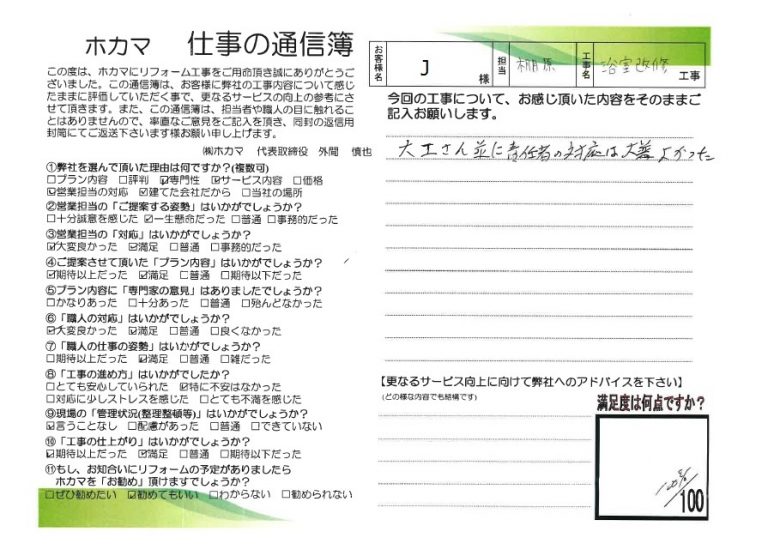 ホカマ 仕事の通信簿
この度は、ホカマにリフォーム工事をご用命頂き誠にありがとうご
ざいました。この通信簿は、お客様に弊社の工事内容について感じ
たままに評価していただく事で、更なるサービスの向上の参考にさ
せて頂きます。また、この通信簿は、担当者や職人の目に触れるこ
とはありませんので、率直なご意見をご記入を頂き、同封の返信用
封筒にてご返送下さいます様お願い申し上げます。
㈱ホカマ 代表取締役 外間 慎也
①弊社を選んで頂いた理由は何ですか?(複数可)
□プラン内容 □評判 ☑専門性 ☑サービス内容 □価格
☑営業担当の対応 ☑建てた会社だから □当社の場所
②営業担当の「ご提案する姿勢」はいかがでしょうか?
□十分誠意を感じた ☑一生懸命だった □普通 □事務的だった
③営業担当の「対応」はいかがでしょうか?
☑大変良かった ☑満足 □普通 □事務的だった
④ご提案させて頂いた「プラン内容」はいかがでしょうか?
☑期待以上だった ☑満足 □普通 □期待以下だった
⑤プラン内容に「専門家の意見」はありましたでしょうか?
□かなりあった □十分あった □普通 □殆んどなかった
⑥「職人の対応」はいかがでしょうか?
☑大変良かった ☑満足 □普通 □良くなかった
⑦「職人の仕事の姿勢」はいかがでしょうか?
□期待以上だった ☑満足 □普通 □雑だった
⑧「工事の進め方」はいかがでしたか?
□とても安心していられた ☑特に不安はなかった
□対応に少しストレスを感じた □とても不満を感じた
⑨現場の「管理状況(整理整頓等)」はいかがでしょうか?
☑言うことなし □配慮があった □普通 □できていない
⑩「工事の仕上がり」はいかがでしょうか?
☑期待以上だった ☑満足 □普通 □期待以下だった
⑪もし、お知合いにリフォームの予定がありましたら
ホカマを「お勧め」頂けますでしょうか?
□ぜひ勧めたい ☑勧めてもいい □わからない □勧められない
お客様名 J 様 担当 工事名 浴室改修 工事
今回の工事について、お感じ頂いた内容をそのままご
記入お願いします。
大工さん並に責任者の対応は大変よかった
【更なるサービス向上に向けて弊社へのアドバイスを下さい】
(どの様な内容でも結構です)
満足度は何点ですか?
/100